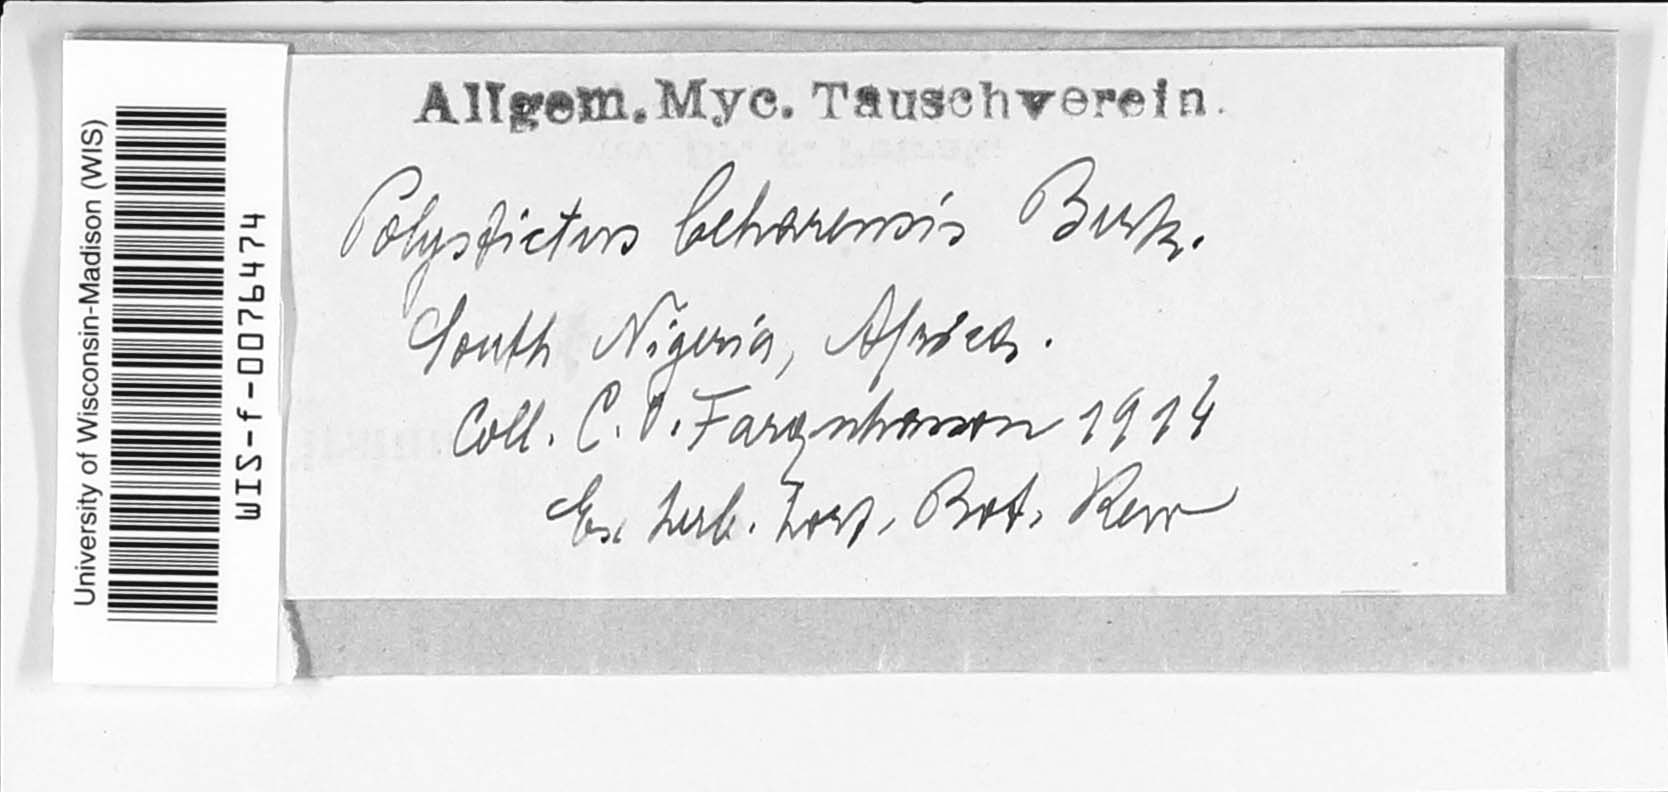 Allgem. Myc. Tauschverein.
Polystictus beharensis Berk.
South Nigeria, Africa.
Coll. C. O. Farquharson 1914
Ex herb. hort. Bot. Kew
University of Wisconsin-Madison (WIS)
WIS-f-0076474